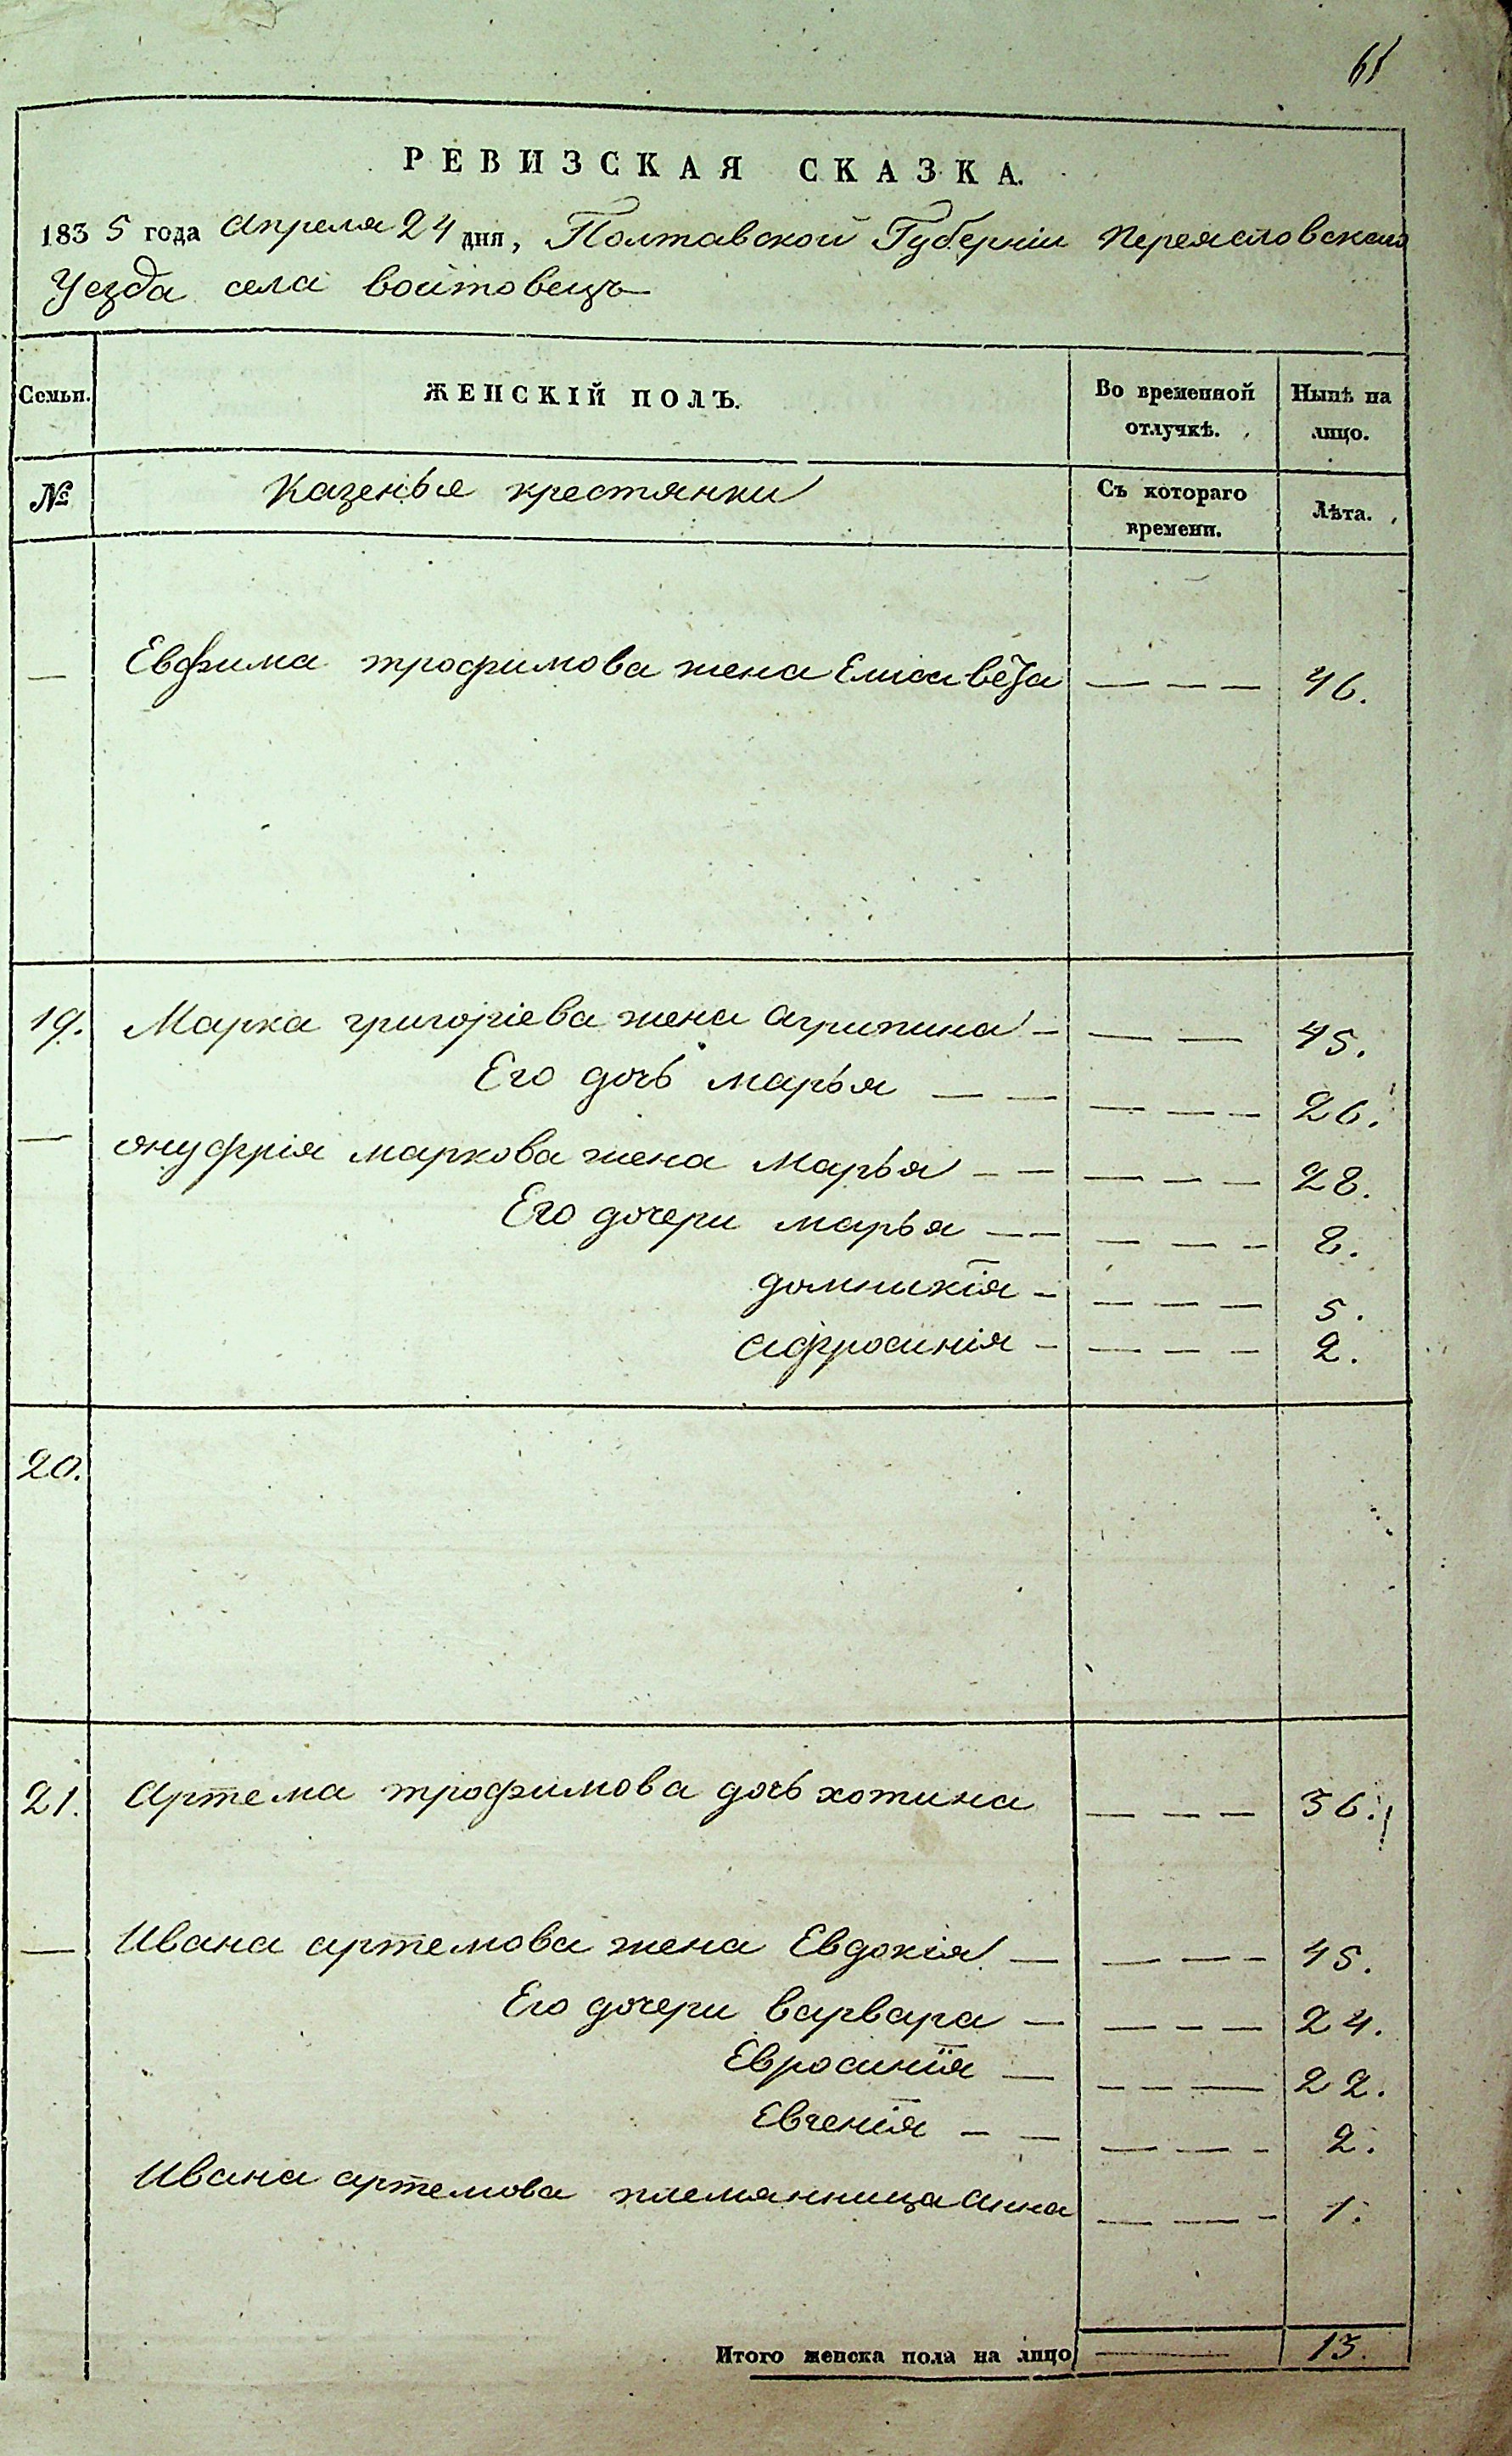 61
РЕВИЗСКАЯ СКАЗКА.
1835 года Апреля 24 дня, Полтавской Губерніи Переясловскаго
Уезда села войтовецъ
Семьи. ЖЕНСКІЙ ПОЛЪ. Во временной отлучкѣ. Нынѣ на лицо.
№ Казенъые крестянки Съ котораго времени. Лѣта.
— Евфима трофимова жена Елисавета — — — 46.
19. Марка григоріева жена агрипина — — — 45.
Его дочь марья — — — — — 26.
— онуфрія маркова жена марья — — — — — 28.
Его дочери марья — — — — — 8.
домникія — — — — 5.
афросинія — — — — 2.
20.
21. Артема трофимова дочь хотина — — — 36.
— Ивана артемова жена Евдокія — — — — 45.
Его дочери варвара — — — — 24.
Евросинія — — — — 22.
Евгенія — — — — — 2.
Ивана артемова племянница анна — — — 1.
Итого женска пола на лицо — 13.